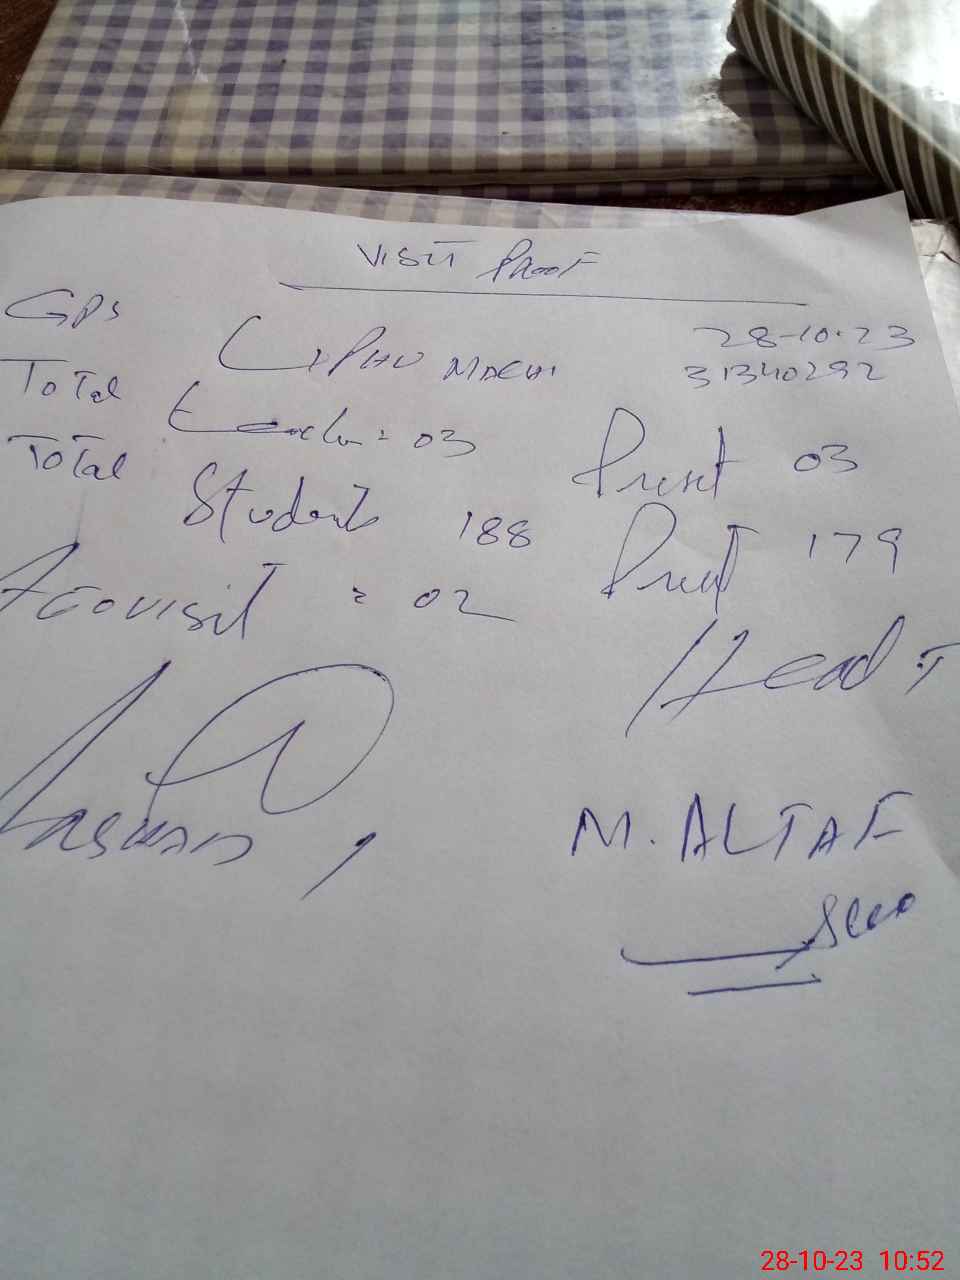 VISIT PROOF
GPS 28-10-23
31340292
Total Teacher = 03 Present 03
Total Students 188 Present 179
visit = 02
Head T
M. ALTAF
28-10-23 10:52